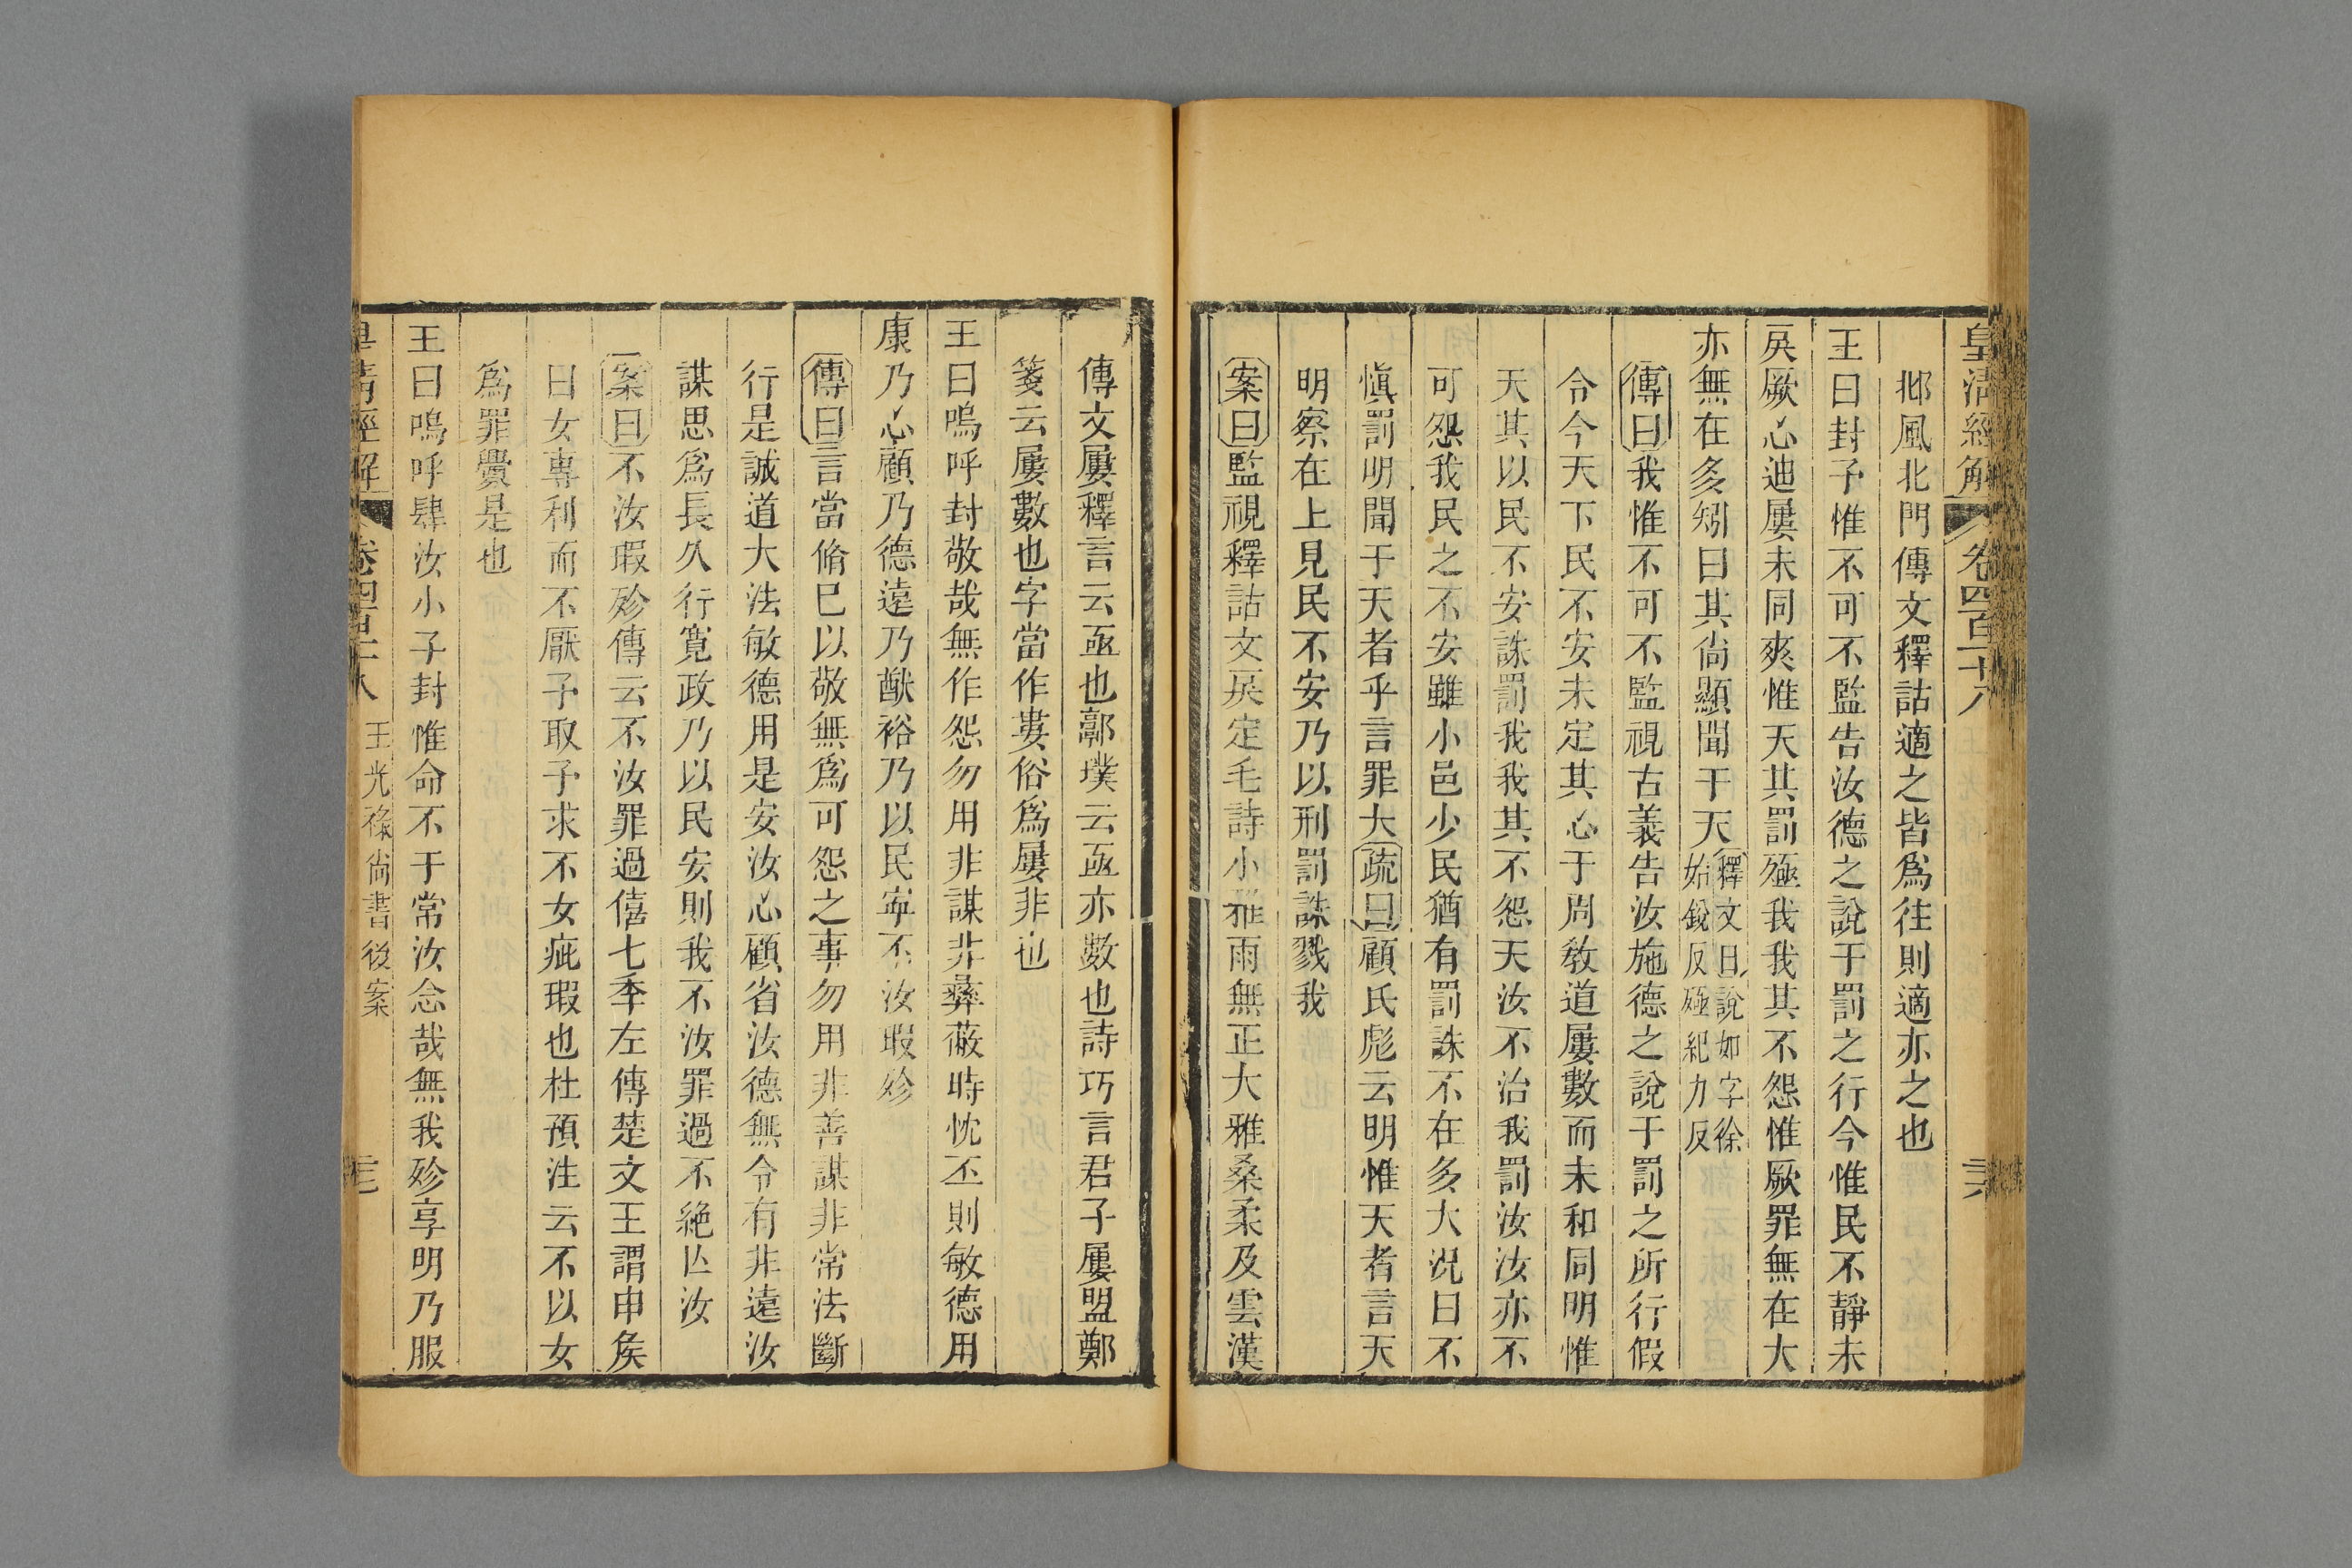 皇清經解 卷四百二十八 三六
邶風北門傳文釋詁適之皆爲往則適亦之也
王曰封予惟不可不監告汝德之說于罰之行今惟民不靜未
戾厥心迪屢未同爽惟天其罰殛我我其不怨惟厥罪無在大
亦無在多矧曰其尙顯聞于天釋文曰說如字徐
始銳反殛紀力反
傳曰我惟不可不監視古義告汝施德之說于罰之所行假
令今天下民不安未定其心于周敎道屢數而未和同明惟
天其以民不安誅罰我我其不怨天汝不治我罰汝汝亦不
可怨我民之不安雖小邑少民猶有罰誅不在多大況曰不
愼罰明聞于天者乎言罪大疏曰顧氏彪云明惟天者言天
明察在上見民不安乃以刑罰誅戮我
案曰監視釋詁文戾定毛詩小雅雨無正大雅桑柔及雲漢
傳文屢釋言云亟也郭璞云亟亦數也詩巧言君子屢盟鄭
箋云屢數也字當作婁俗爲屢非也
王曰嗚呼封敬哉無作怨勿用非謀非彝蔽時忱丕則敏德用
康乃心顧乃德遠乃猷裕乃以民寧不汝瑕殄
傳曰言當脩已以敬無爲可怨之事勿用非善謀非常法斷
行是誠道大法敏德用是安汝心顧省汝德無令有非遠汝
謀思爲長久行寬政乃以民安則我不汝罪過不絶亾汝
案曰不汝瑕殄傳云不汝罪過僖七秊左傳楚文王謂申矦
曰女專利而不厭予取予求不女疵瑕也杜預注云不以女
爲罪釁是也
王曰嗚呼肆汝小子封惟命不于常汝念哉無我殄享明乃服
皇清經解 卷四百二十八 王光祿尙書後案 三七